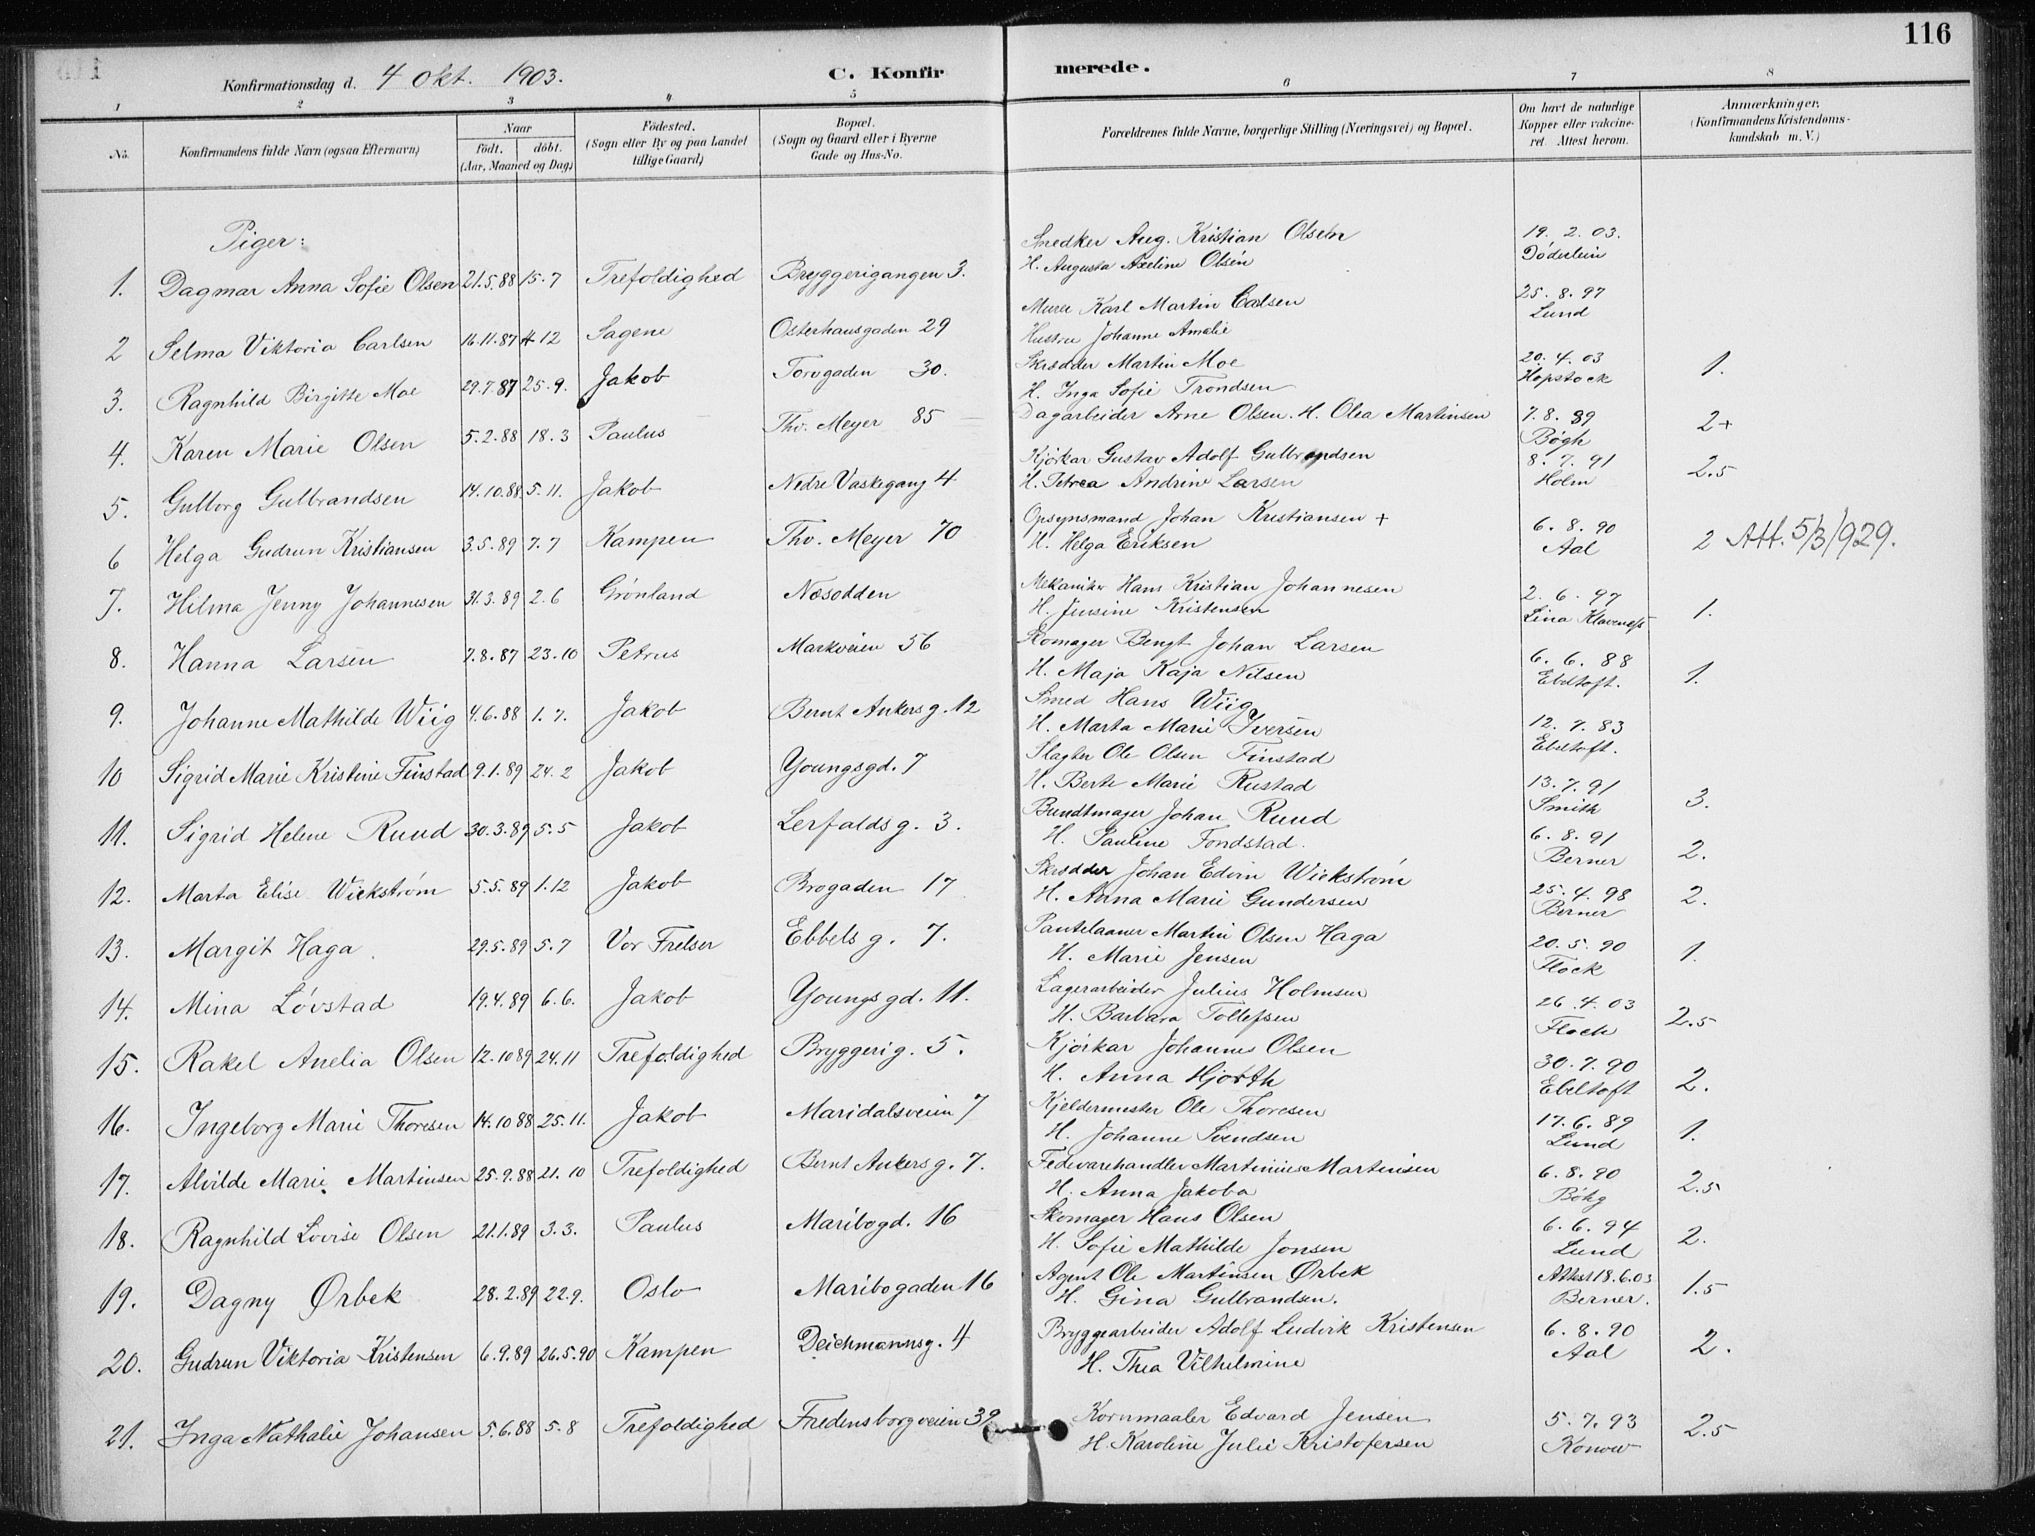 116
Konfirmationsdag d. 4 Okt. 1903.
C. Konfirmerede.
1 2 3 4 5 6 7 8
No.
Konfirmandens fulde Navn (ogsaa Efternavn)
Naar
födt. döbt.
(Aar, Maaned og Dag)
Födested.
(Sogn eller By og paa Landet
tillige Gaard)
Bopæl.
(Sogn og Gaard eller i Byerne
Gade og Hus-No.
Forældrenes fulde Navne, borgerlige Stilling (Næringsvei) og Bopæl.
Om havt de naturlige
Kopper eller vakcine-
ret. Attest herom.
Anmærkninger.
(Konfirmandens Kristendoms-
kundskab m. V.)
Piger:
1. Dagmar Anna Sofie Olsen 21.5.88 15.7 Trefoldighed Bryggerigangen 3. Snedker Aug. Kristian Olsen 19.2.03.
H. Augusta Axeline Olsen Döderlein
2 Selma Viktoria Carlsen 16.11.87 4.12 Sagene Osterhausgaden 29 Murer Karl Martin Carlsen 25.8.97
Hustru Johanne Amalie Lund
3. Ragnhild Birgitte Moe 29.7.87 25.9. Jakob Torvgaden 30. Skrædder Martin Moe 20.4.03 1.
H. Inga Sofie Trondsen Hopstock
4. Karen Marie Olsen 5.2.88 18.3 Paulus Thv. Meyer 85 Dagarbeider Arne Olsen. H. Olea Martinsen 7.8.89 2+
Bögh
5. Gulborg Gulbrandsen 14.10.88 5.11. Jakob Nedre Vaskegang 4 Kjörkar Gustav Adolf Gulbrandsen 8.7.91 2.5
H. Petrea Andrine Larsen Holm
6 Helga Gudrun Kristiansen 3.5.89 7.7 Kampen Thv. Meyer 70 Opsynsmand Johan Kristiansen + 6.8.90 2 Att. 5/3/929.
H. Helga Eriksen Aal
7. Hilma Jenny Johannesen 31.3.89 2.6 Grönland Næsodden Mekaniker Hans Kristian Johannesen 2.6.97 1.
H. Jensine Kristensen Lina Klaveness
8. Hanna Larsen 7.8.87 23.10 Petrus Markveien 56 Skomager Bengt Johan Larsen 6.6.88 1.
H. Maja Kaja Nilsen Ebeltoft.
9. Johanne Mathilde Wiig 4.6.88 1.7. Jakob Bernt Ankersg. 12 Smed Hans Wiig 12.7.83
H. Marta Marie Iversen Ebeltoft.
10 Sigrid Marie Kristine Finstad 9.1.89 24.2 Jakob Youngsgd. 7 Slagter Ole Olsen Finstad 13.7.91 3.
H. Berte Marie Rustad Smith
11. Sigrid Helene Ruud 30.3.89 5.5 Jakob Lerfaldsg. 3. Bundtmager Johan Ruud 6.8.91 2.
H. Pauline Fondstad. Berner
12. Marta Elise Wickström 5.5.89 1.12 Jakob Brogaden 17 Skrædder Johan Edvin Wickström 25.4.98 2.
H. Anna Marie Gundersen Berner
13. Margit Haga 29.5.89 5.7 Vor Frelser Ebbelsg. 7. Pantelaaner Martin Olsen Haga 20.5.90 1.
H. Marie Jensen Flock
14. Mina Lövstad 19.4.89 6.6. Jakob Youngsgd. 11. Lagerarbeider Julius Holmsen 26.4.03 2.5
H. Barbara Tollefsen Flock
15. Rakel Anelia Olsen 12.10.89 24.11 Trefoldighed Bryggerig. 5. Kjörkar Johannes Olsen 30.7.90 2.
H. Anna Hjorth Ebeltoft
16. Ingeborg Marie Thoresen 14.10.88 25.11. Jakob Maridalsveien 7 Kjeldermester Ole Thoresen 17.6.89 1.
H. Johanne Svendsen Lund
17. Alvilde Marie Martinsen 25.9.88 21.10 Trefoldighed Bernt Ankersg. 7. Fedevarehandler Martinius Martinsen 6.8.90 2.5
H. Anna Jakoba Böhg
18. Ragnhild Lovise Olsen 21.1.89 3.3. Paulus Maribogd. 16 Skomager Hans Olsen 6.6.94 2.
H. Sofie Mathilde Jonsen Lund
19. Dagny Ørbek 28.2.89 22.9. Oslo Maribogaden 16 Agent Ole Martinsen Ørbek Attest 18.6.03 1.5
H. Gina Gulbrandsen. Berner.
20. Gudrun Viktoria Kristensen 6.9.89 26.5.90 Kampen Deichmannsg. 4 Bryggearbeider Adolf Ludvik Kristensen 6.8.90 2.
H. Thea Vilhelmine Aal
21. Inga Nathalie Johansen 5.6.88 5.8 Trefoldighed Fredensborgveien 39 Kornmaaler Edvard Jensen 5.7.93 2.5
H. Karoline Julie Kristofersen Konow